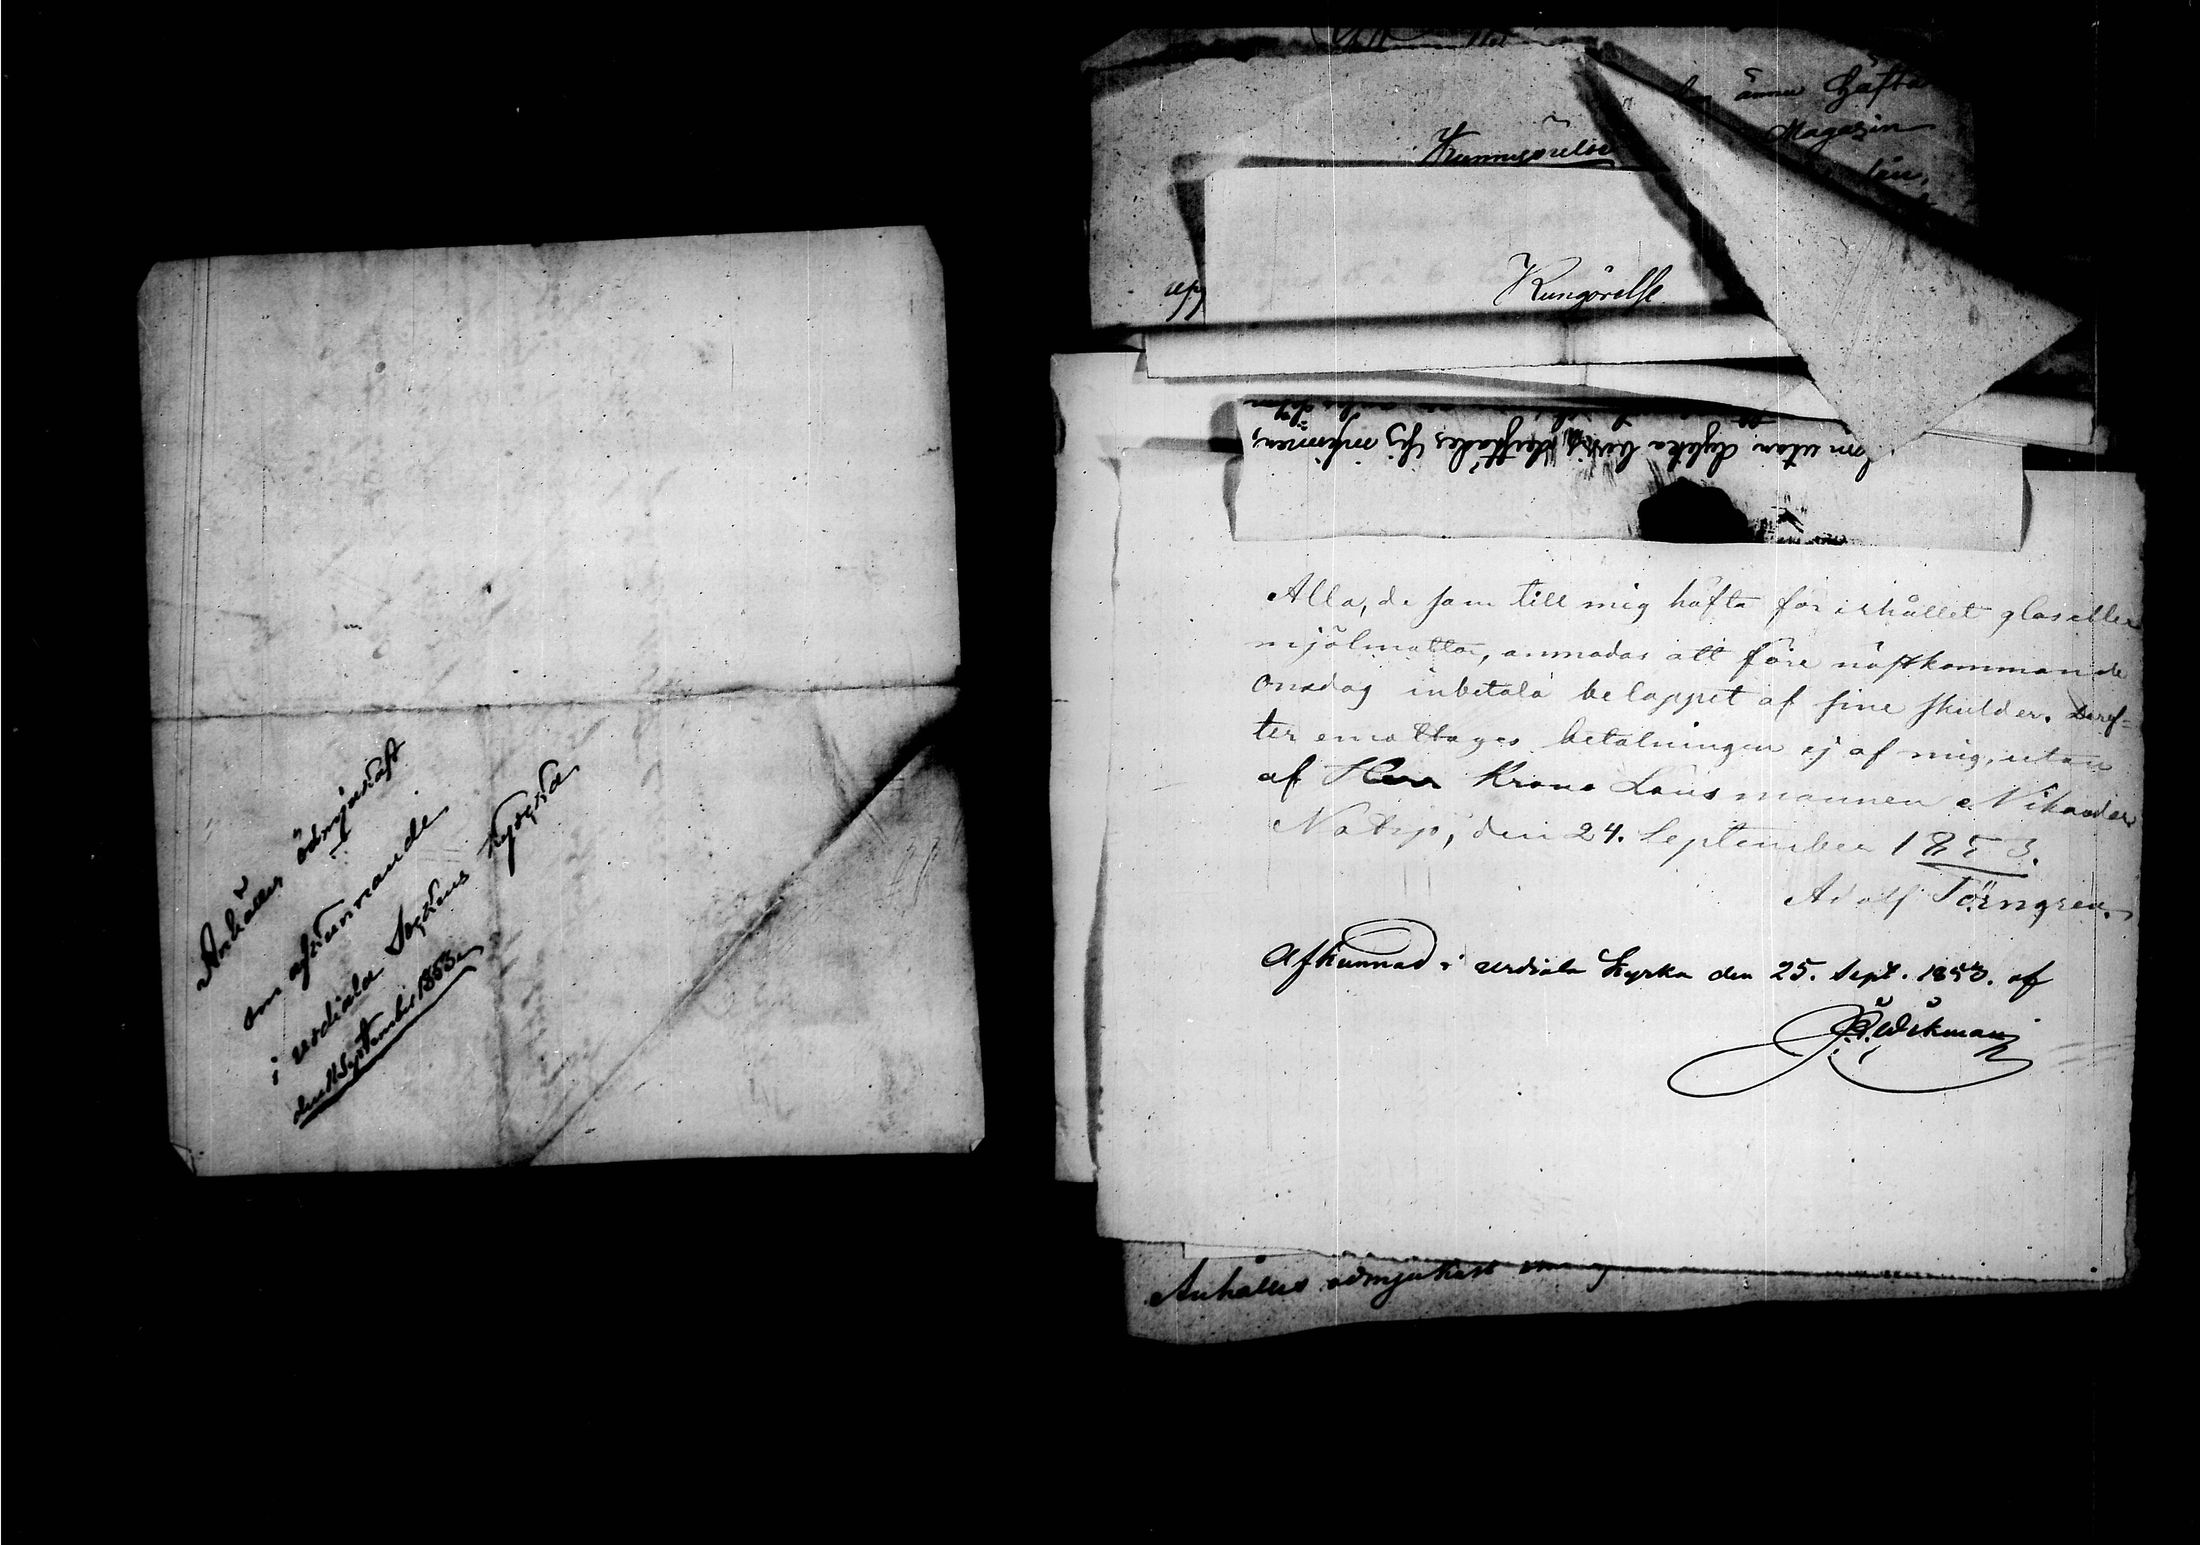 Anhålles ödmjukast
om afkunnande
i Urdiala Sockens kyrka
den 11 September 1853.
ännu häfta
Magasin
Kunngörelse
Kungörelse
om utan dylika bevis serskildes sig infinner,
Alla, de som till mig häfta för erhållet glas eller
mjölmattor, anmodas att före nästkommande
onsdag inbetala beloppet af sine skulder. Deref=
ter emottages betalningen ej af mig, utan
af Herr Krono Länsmannen Nikander
Notsjö, den 24. September 1853.
Adolf Törngren.
Afkunnad i Urdiala kyrka den 25. Sept. 1853. af
Wikman
Anhålles ödmjukast om